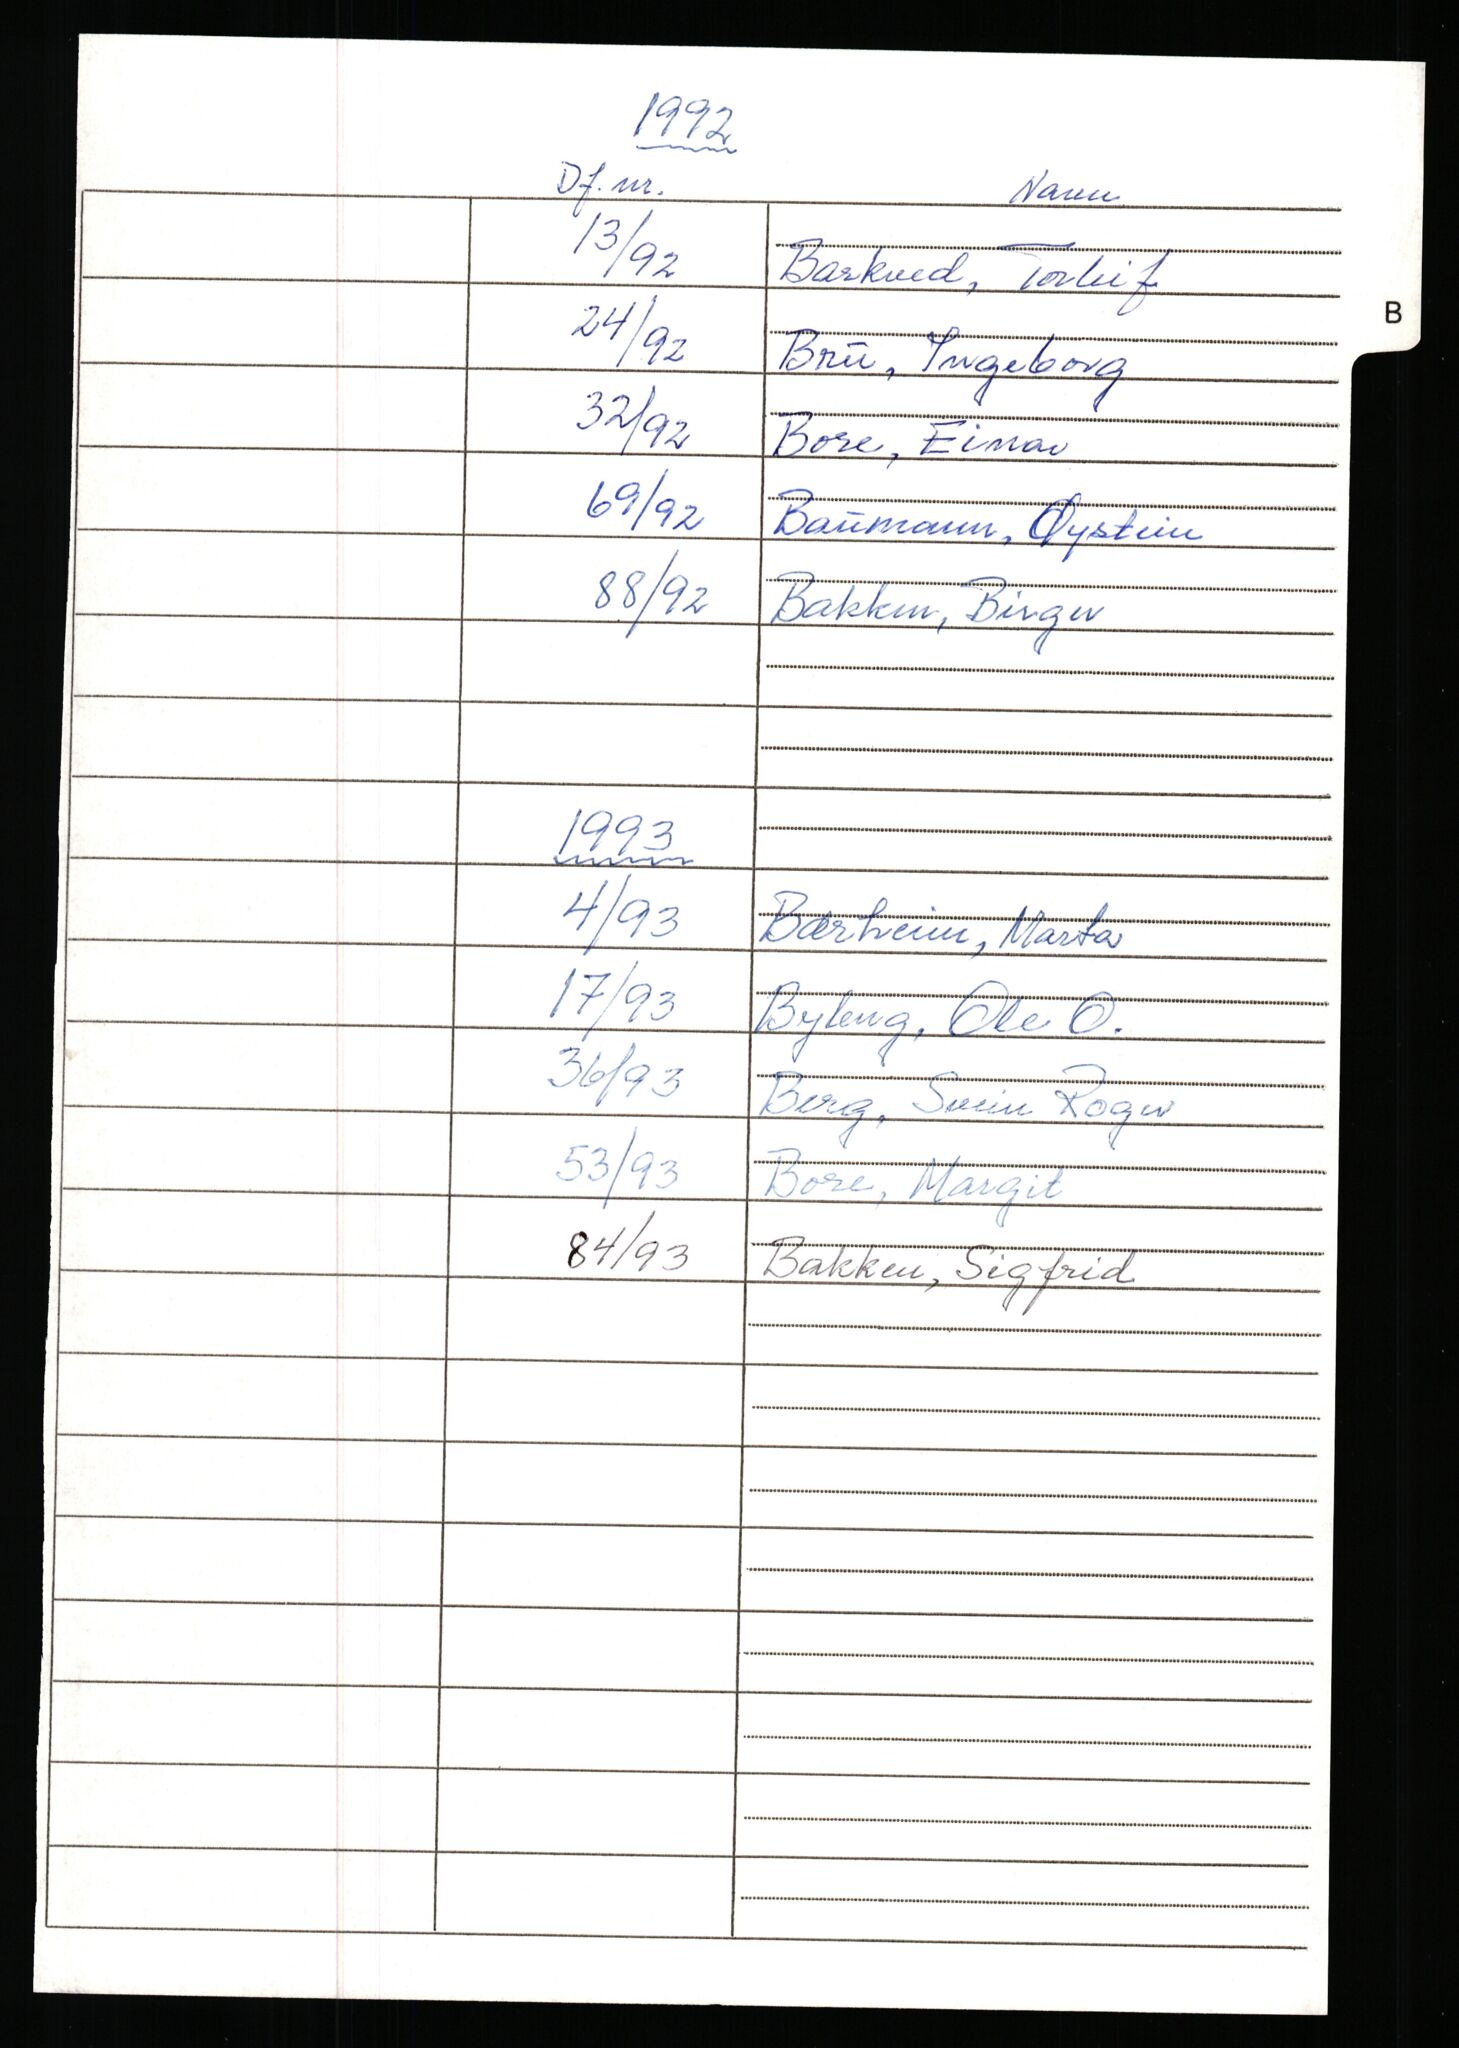 1992
Df. nr. Navn
13/92 Barkved, Torleif
B
24/92 Bru, Ingeborg
32/92 Bore, Einar
69/92 Baumann, Øystein
88/92 Bakken, Birger
1993
4/93 Bærheim, Marta
17/93 Byberg, Ole O.
36/93 Berg, Svein Roger
53/93 Bore, Margit
84/93 Bakken, Sigfrid